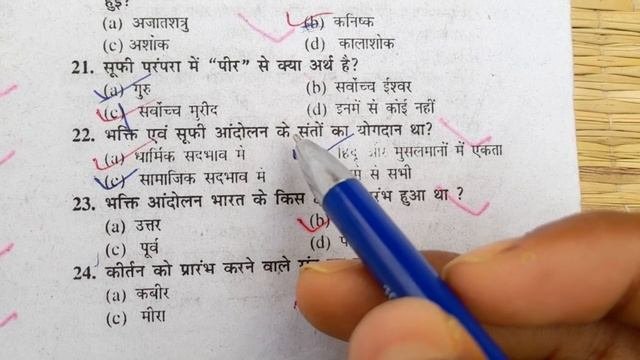 हुइ?
(a) अजातशत्रु (b) कनिष्क
(c) अशोक (d) कालाशोक
21. सूफी परंपरा में “पीर” से क्या अर्थ है?
(a) गुरु (b) सर्वोच्च ईश्वर
(c) सर्वोच्च मुरीद (d) इनमें से कोई नहीं
22. भक्ति एवं सूफी आंदोलन के संतों का योगदान था?
(a) धार्मिक सदभाव में हिंदू और मुसलमानों में एकता
(c) सामाजिक सदभाव में से सभी
23. भक्ति आंदोलन भारत के किस हुआ था ?
(a) उत्तर (b)
(c) पूर्व (d)
24. कीर्तन को प्रारंभ करने वाले
(a) कबीर
(c) मीरा